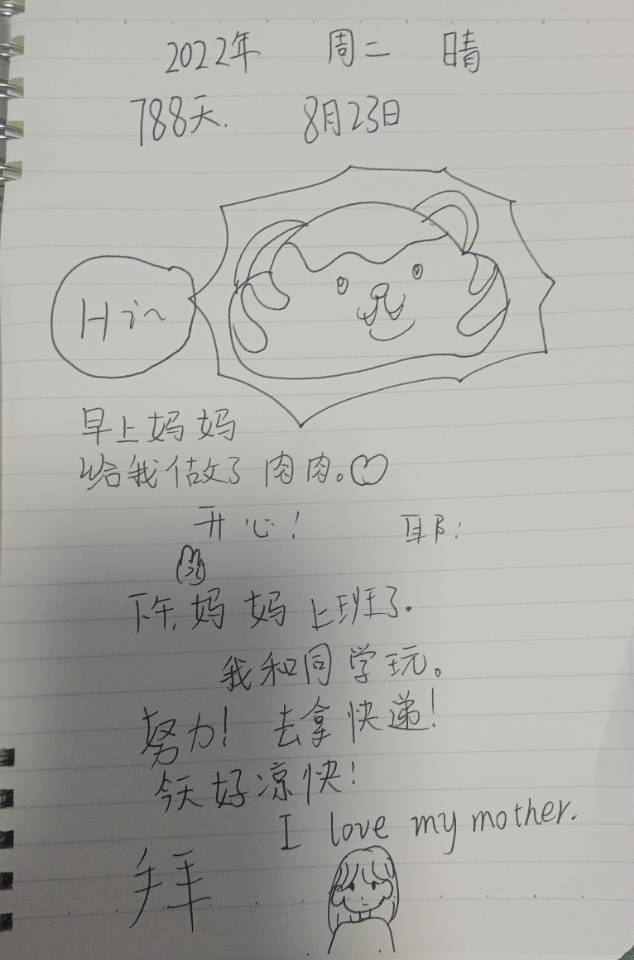 2022年 周二 晴
788天. 8月23日
Hi~
早上妈妈
给我做了肉肉。
开心! 耶!
下午,妈妈上班了.
我和同学玩。
努力! 去拿快递!
今天好凉快!
I love my mother.
拜